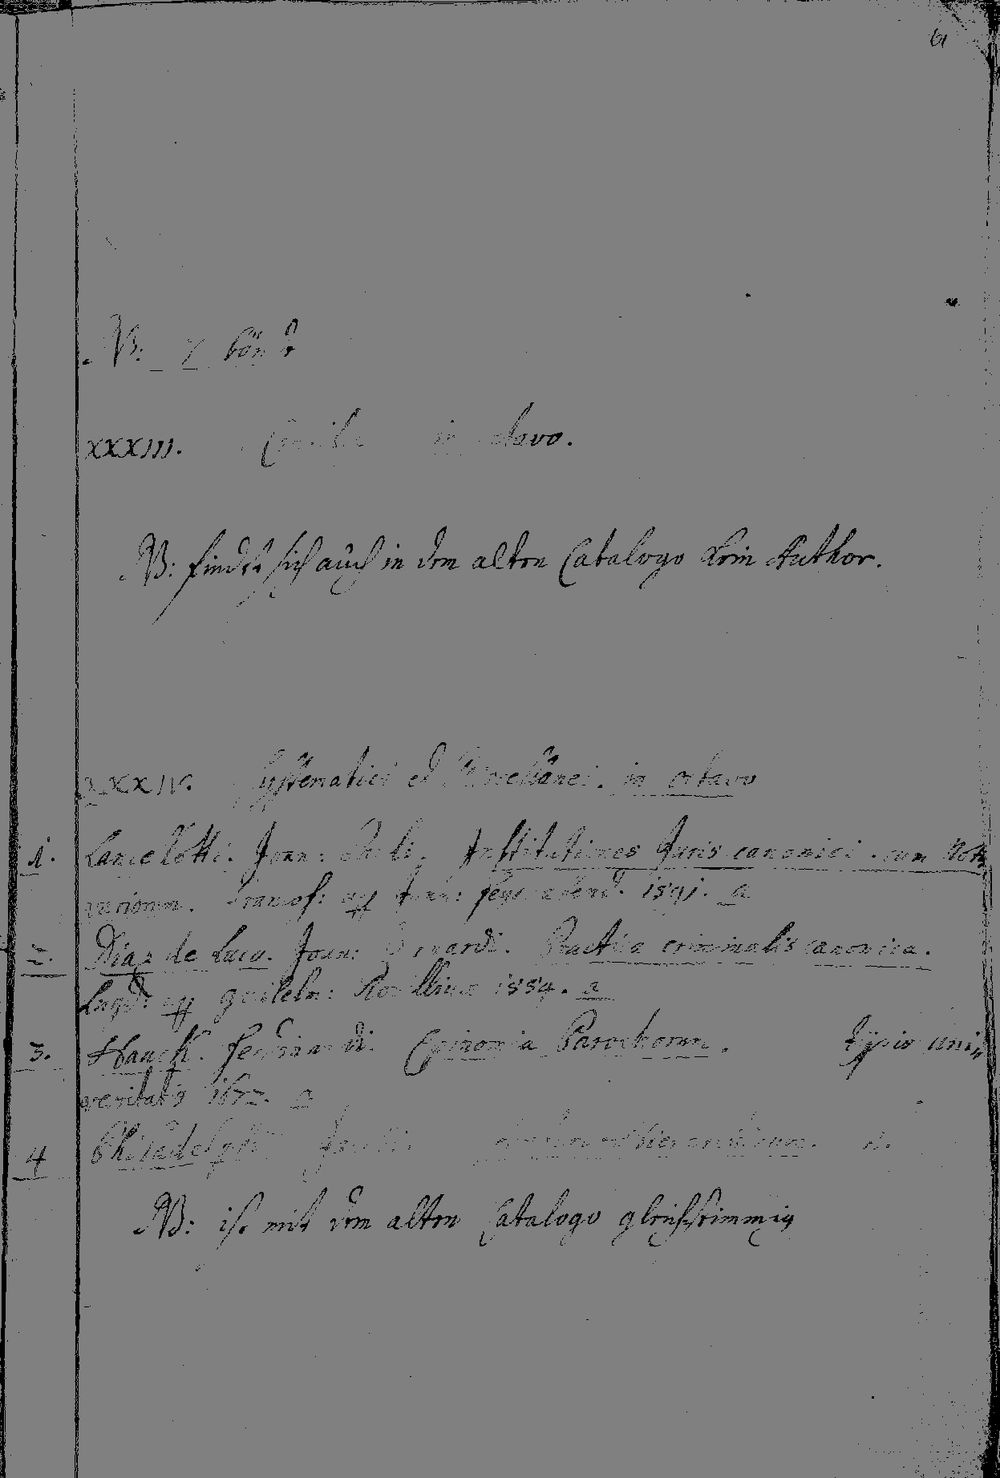 61
NB: 7 bänd
XXXIII. Concilia in octavo.
NB: findet sich auch in dem alten Catalogo kein Author.
XXXIV. Systematici et Miscellanei. in octavo
1. Lancelotti. Joan: Pauli. Institutiones Juris canonici. cum Not
Francof: apd Joan: Feyerabend. 1591. a
2. Diaz de Luco. Joan: Bernardi. Practica criminalis canonica.
Lugd: apd guilelm: Rovillium 1554. a
3. Hauck. Ferdinandi. Epinomia Parochorum. typis uni
versitatis 1672. a
4 Philadelphi
NB: ist mit dem alten Catalogo gleichstimmig